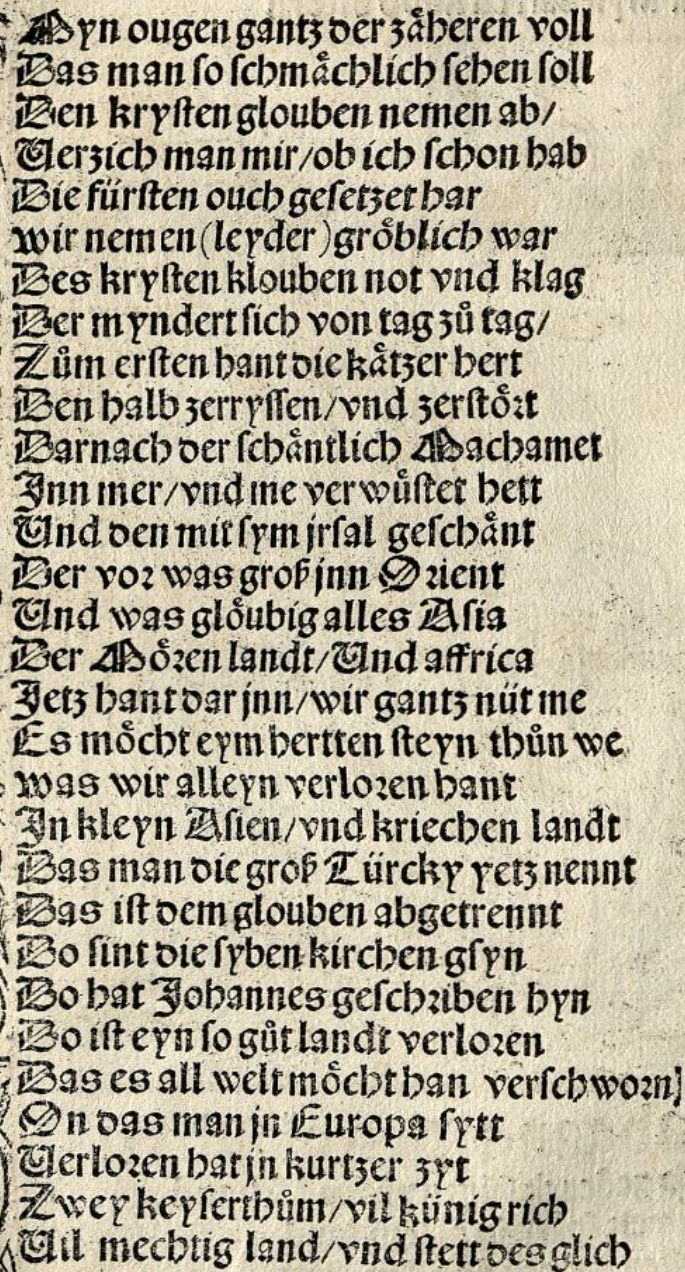 Myn ougen gantz der zåheren voll
Das man so schmåchlich sehen soll
Den krysten glouben nemen ab/
Verzich man mir/ob ich schon hab
Die fürsten ouch gesetzet har
wir nemen (leyder) gröblich war
Des krysten klouben not vnd klag
Der myndert sich von tag zů tag/
Zům ersten hant die kåtzer hert
Den halb zerryssen/vnd zerstört
Darnach der schåntlich Machamet
Inn mer/vnd me verwůstet hett
Vnd den mit sym jrsal geschånt
Der vor was groß jnn Orient
Vnd was glöubig alles Asia
Der Mören landt/Vnd affrica
Jetz hant dar jnn/wir gantz nüt me
Es möcht eym hertten steyn thůn we
was wir alleyn verloren hant
In kleyn Asien/vnd kriechen landt
Das man die groß Türcky yetz nennt
Das ist dem glouben abgetrennt
Do sint die syben kirchen gsyn
Do hat Johannes geschriben hyn
Do ist eyn so gůt landt verloren
Das es all welt möcht han verschworn]
On das man jn Europa sytt
Verloren hat jn kurtzer zyt
Zwey keyserthům/vil künig rich
Vil mechtig land/vnd stett des glich